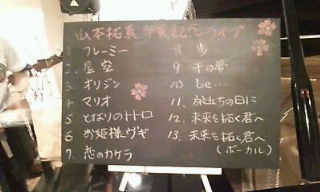 山本拓真 卒業記念ライブ
1 フレーミー
2. 星空
3. オリジン
4 マリオ
5 となりのトトロ
6 お姫様ヴギ
7. 恋のカケラ
8 歩
9 千の夢
10 be...
11. 旅立ちの日に
12. 未来を拓く君へ
13. 未来を拓く君へ
(ボーカル)